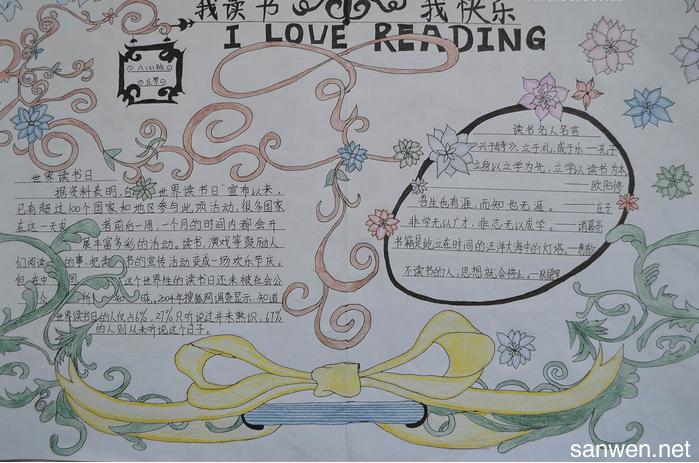 我读书 我快乐
I LOVE READING
八(3)班
世界读书日
据资料表明,自"世界读书日"宣布以来,
已有超过100个国家和地区参与此项活动,很多国家
在这一天或者前后一周,一个月的时间内都会开
展丰富多彩的活动。读书、演戏等鼓励人
们阅读的事,把读书的宣传活动变成一场欢乐节庆。
但在中国,这个世界性的读书日还未被社会公
2004年搜狐网调查显示,知道
世界读书日的人仅占6%,27%只听说过并未熟识,67%
的人则从未听说这个日子。
读书名人名言
兴于诗,立于礼,成于乐——孔子
立身以立学为先,立学以读书为本
——欧阳修
吾生也有涯,而知也无涯。——庄子
非学无以广才,非志无以成学。——诸葛亮
书籍是屹立在时间的汪洋大海中的灯塔。
不读书的人,思想就会停止。
sanwen.net